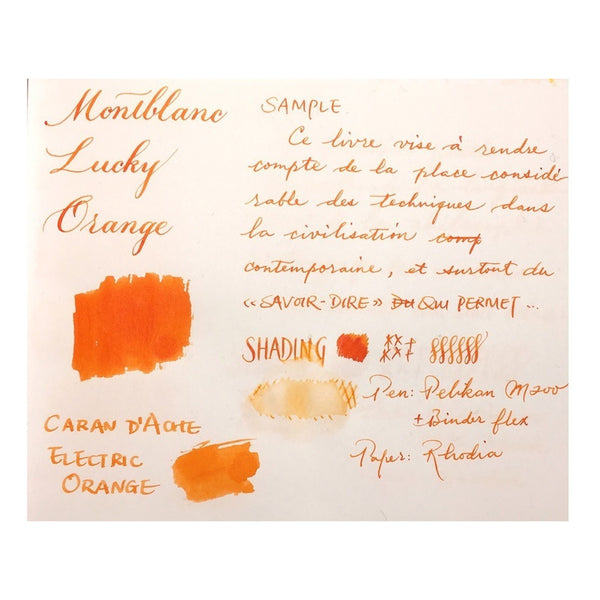 Montblanc
Lucky
Orange
SAMPLE
Ce livre vise à rendre
compte de la place considé
rable des techniques dans
la civilisation comp
contemporaine, et surtout du
«SAVOIR-DIRE» DU QUI PERMET...
SHADING
Pen: Pelikan M200
+ Binder flex
Paper: Rhodia
CARAN D'ACHE
ELECTRIC
ORANGE